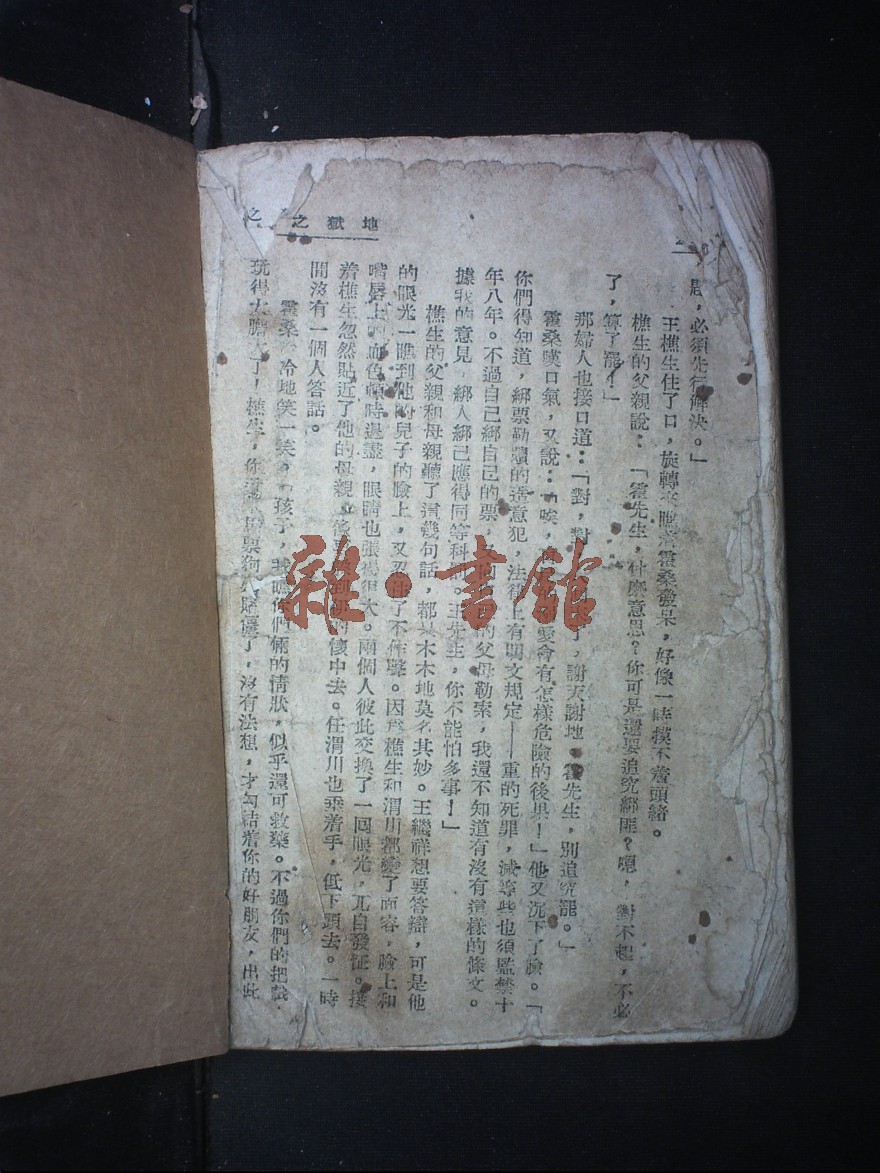 地獄之
題，必須先行解決。」
王樵生住了口，旋轉來瞧着霍桑發呆，好像一時摸不着頭緒。
樵生的父親說：「霍先生，什麼意思？你可是還要追究綁匪？嗯，對不起，不必
了，算了罷！」
那婦人也接口道：「對，對，了，謝天謝地。霍先生，別追究罷。」
霍桑嘆口氣，又說：「唉，愛會有怎樣危險的後果！」他又沉下了臉。「
你們得知道，綁票勒贖的造意犯，法律上有明文規定——重的死罪，減等些也須監禁十
年八年。不過自己綁自己的票，的父母勒索，我還不知道有沒有這樣的條文。
據我的意見，綁人綁己應得同等科。王先生，你不能怕多事！」
樵生的父親和母親聽了這幾句話，都木木地莫名其妙。王繼祥想要答辯，可是他
的眼光一瞧到他的兒子的臉上，又忍住了不作聲。因爲樵生和渭川都變了面容，臉上和
嘴唇上的血色頓時退盡，眼睛也張得很大。兩個人彼此交換了一回眼光，兀自發怔。接
着樵生忽然貼近了他的母親，後到的懷中去。任渭川也垂着手，低下頭去。一時
間沒有一個人答話。
霍桑冷地笑一笑。「孩子，我瞧你們倆的情狀，似乎還可救藥。不過你們的把戲，
玩得太膽大了！樵生，你票狗賭輸了，沒有法想，才勾結着你的好朋友，出此
雜·書館